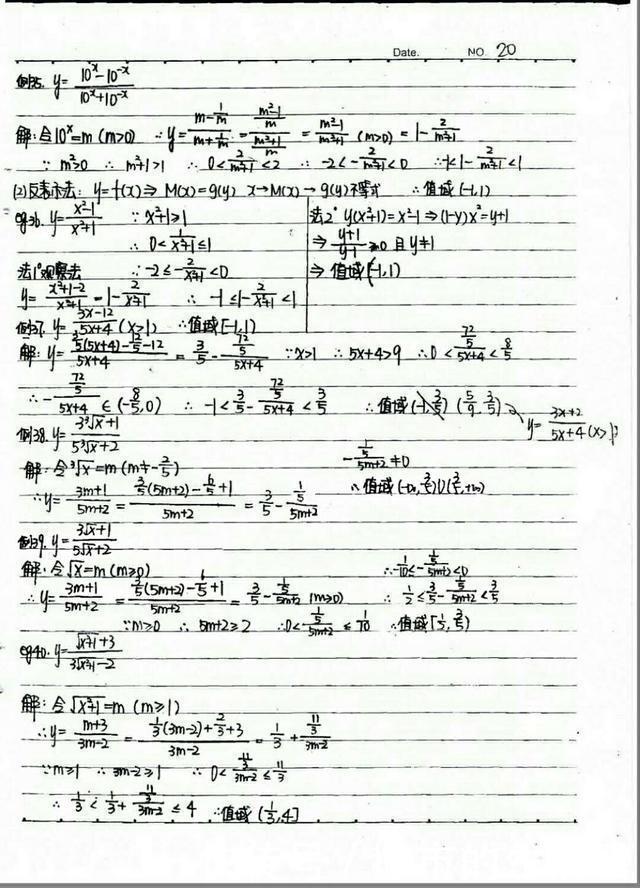 Date. NO. 20
例35. y = (10^x - 10^-x)/(10^x + 10^-x)
解: 令10^x = m (m>0) ∴ y = (m - 1/m)/(m + 1/m) = ((m²-1)/m)/((m²+1)/m) = (m²-1)/(m²+1) (m>0) = 1 - 2/(m²+1)
∵ m²>0 ∴ m²+1>1 ∴ 0 < 2/(m²+1) < 2 ∴ -2 < -2/(m²+1) < 0 ∴ -1 < 1 - 2/(m²+1) < 1
(2) 反表示法: y = f(x) ⇒ M(x) = g(y) x → M(x) → g(y) 不等式 ∴ 值域 (-1,1)
eg36. y = (x²-1)/(x²+1) ∵ x²+1≥1
∴ 0 < 1/(x²+1) ≤ 1
法1° 观察法 ∴ -2 ≤ -2/(x²+1) < 0
y = (x²+1-2)/(x²+1) = 1 - 2/(x²+1) ∴ -1 ≤ 1 - 2/(x²+1) < 1
∴ 值域 [-1,1)
法2° y(x²+1) = x²-1 ⇒ (1-y)x² = y+1
⇒ (y+1)/(y-1) ≥0 且 y≠1
⇒ 值域 [-1,1)
例37. y = (3x-12)/(5x+4) (x>1)
解: y = (3/5(5x+4) - 12/5 - 12)/(5x+4) = 3/5 - (72/5)/(5x+4) ∵ x>1 ∴ 5x+4>9 ∴ 0 < (72/5)/(5x+4) < 8/5
∴ -(72/5)/(5x+4) ∈ (-8/5, 0) ∴ -1 < 3/5 - (72/5)/(5x+4) < 3/5 ∴ 值域 (-1, 3/5) (5/9, 3/5) → y = (3x+2)/(5x+4) (x>1)
例38. y = (3³√x + 1)/(5³√x + 2)
解: 令³√x = m (m≠-2/5) -(1/5)/(5m+2) ≠ 0
∴ y = (3m+1)/(5m+2) = (3/5(5m+2) - 6/5 + 1)/(5m+2) = 3/5 - (1/5)/(5m+2) ∴ 值域 (-∞, 3/5)∪(3/5, +∞)
例39. y = (3√x + 1)/(5√x + 2)
解: 令√x = m (m≥0) ∴ -1/10 ≤ -(1/5)/(5m+2) < 0
∴ y = (3m+1)/(5m+2) = (3/5(5m+2) - 6/5 + 1)/(5m+2) = 3/5 - (1/5)/(5m+2) (m≥0) ∴ 1/2 ≤ 3/5 - (1/5)/(5m+2) < 3/5
∵ m≥0 ∴ 5m+2≥2 ∴ 0 < (1/5)/(5m+2) ≤ 1/10 ∴ 值域 [1/2, 3/5)
eg40. y = (√(x²+1) + 3)/(3√(x²+1) - 2)
解: 令√(x²+1) = m (m≥1)
∴ y = (m+3)/(3m-2) = (1/3(3m-2) + 2/3 + 3)/(3m-2) = 1/3 + (11/3)/(3m-2)
∵ m≥1 ∴ 3m-2≥1 ∴ 0 < (11/3)/(3m-2) ≤ 11/3
∴ 1/3 < 1/3 + (11/3)/(3m-2) ≤ 4 ∴ 值域 (1/3, 4]